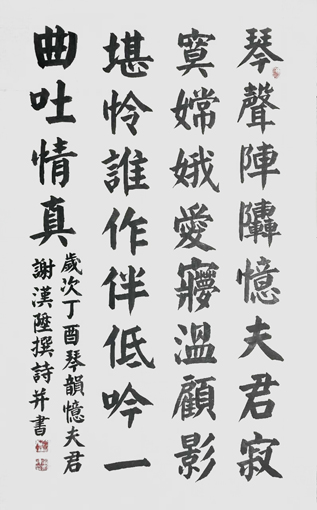 琴聲陣陣憶夫君寂
寞嫦娥愛㝱溫顧影
堪怜誰作伴低吟一
曲吐情真
歲次丁酉琴韻憶夫君
謝漢陞撰詩并書